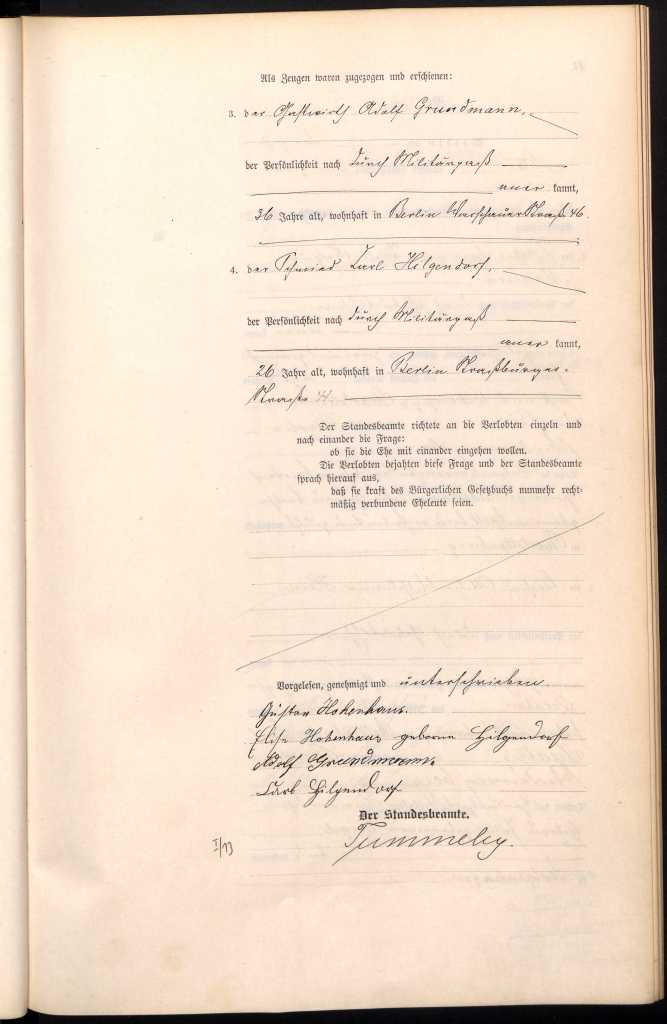 Als Zeugen waren zugezogen und erschienen:
3. der Gastwirth Adolf Grundmann,
der Persönlichkeit nach durch Militärpaß
aner kannt,
36 Jahre alt, wohnhaft in Berlin Warschauer Straße 46.
4. der Schmied Carl Hilgendorf,
der Persönlichkeit nach durch Militärpaß
aner kannt,
26 Jahre alt, wohnhaft in Berlin Straßburger-
Straße 44.
Der Standesbeamte richtete an die Verlobten einzeln und
nach einander die Frage:
ob sie die Ehe mit einander eingehen wollen.
Die Verlobten bejahten diese Frage und der Standesbeamte
sprach hierauf aus,
daß sie kraft des Bürgerlichen Gesetzbuchs nunmehr recht-
mäßig verbundene Eheleute seien.
Vorgelesen, genehmigt und unterschrieben
Gustav Hohenhaus.
Elise Hohenhaus geborne Hilgendorf
Adolf Grundmann.
Carl Hilgendorf
Der Standesbeamte.
I/93